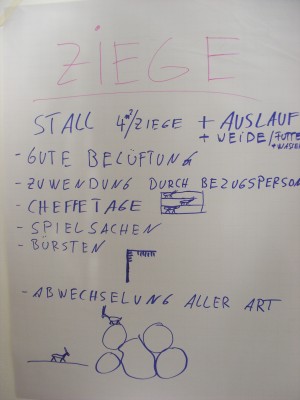 ZIEGE
STALL 4m²/ZIEGE + AUSLAUF
+ WEIDE/FUTTER
+WASSER
- GUTE BELÜFTUNG
- ZUWENDUNG DURCH BEZUGSPERSON
- CHEFFETAGE
- SPIELSACHEN
- BÜRSTEN
- ABWECHSELUNG ALLER ART